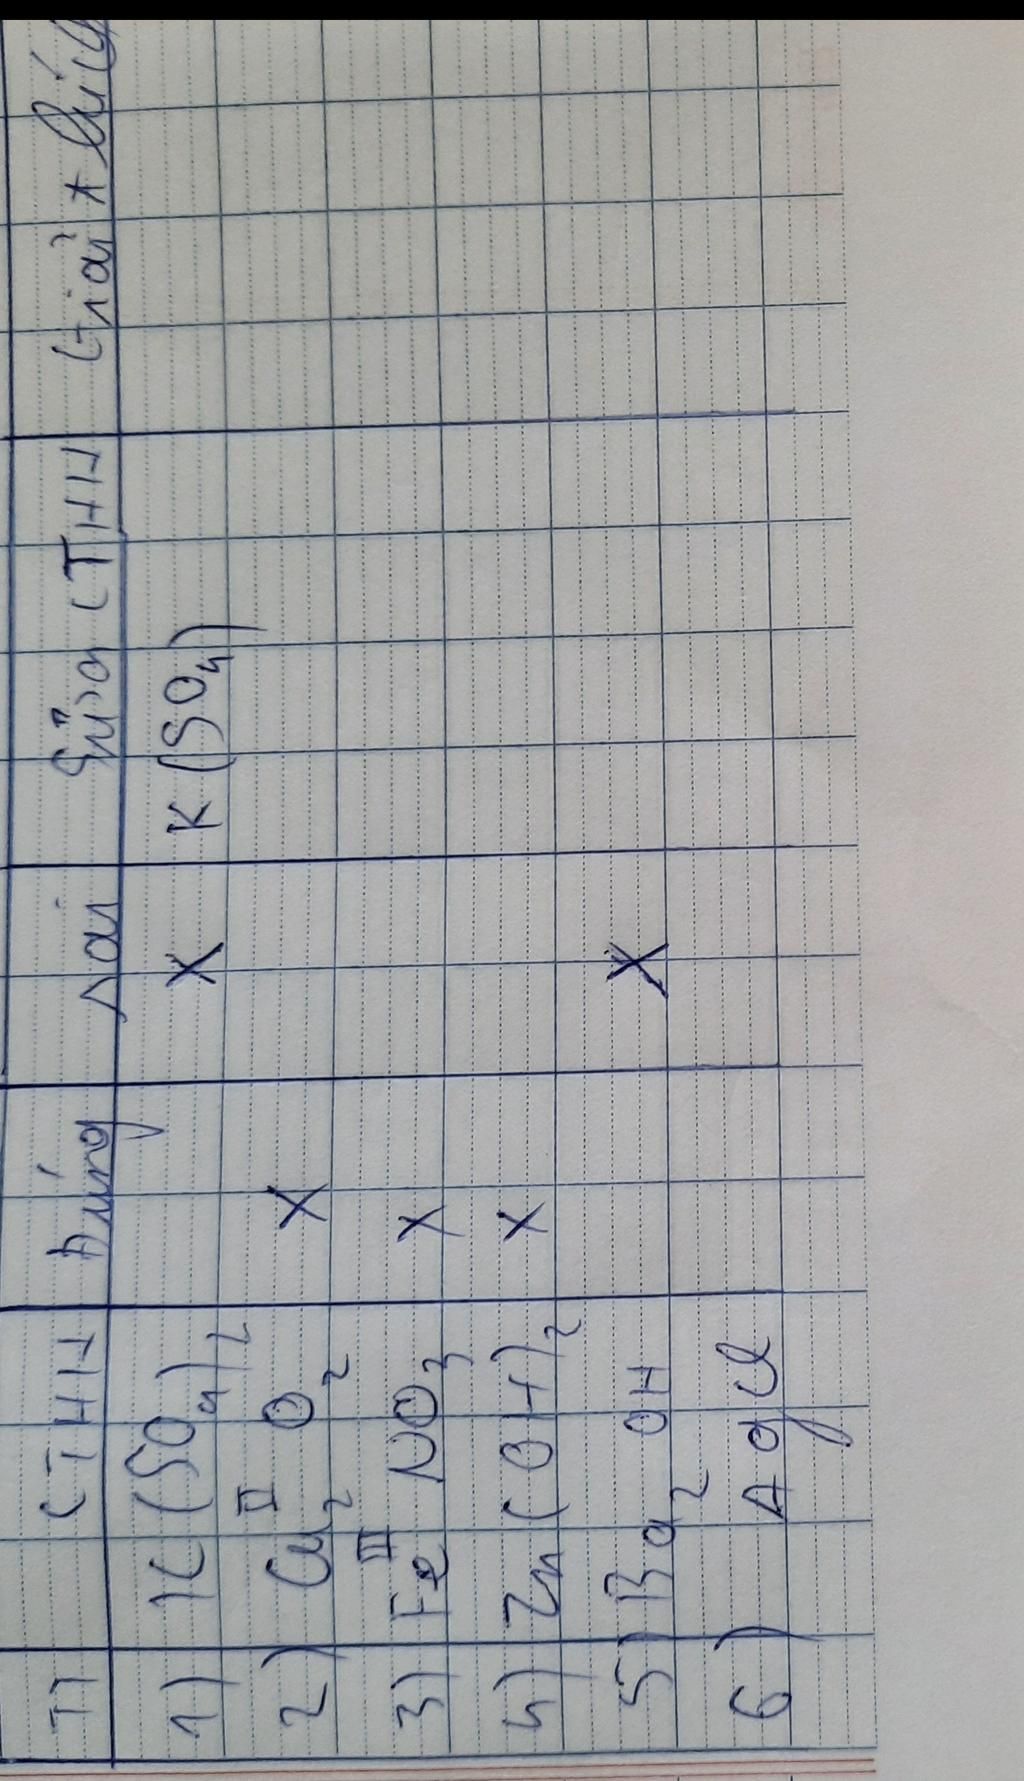 TT CTHH Đúng Sai Sửa CTHH Giải thích
1) K(SO4)2 X K(SO4)
2) Cu2 II O2 X
3) Fe III NO3 X
4) Zn(OH)2 X
5) Ba2 OH X
6) AgCl